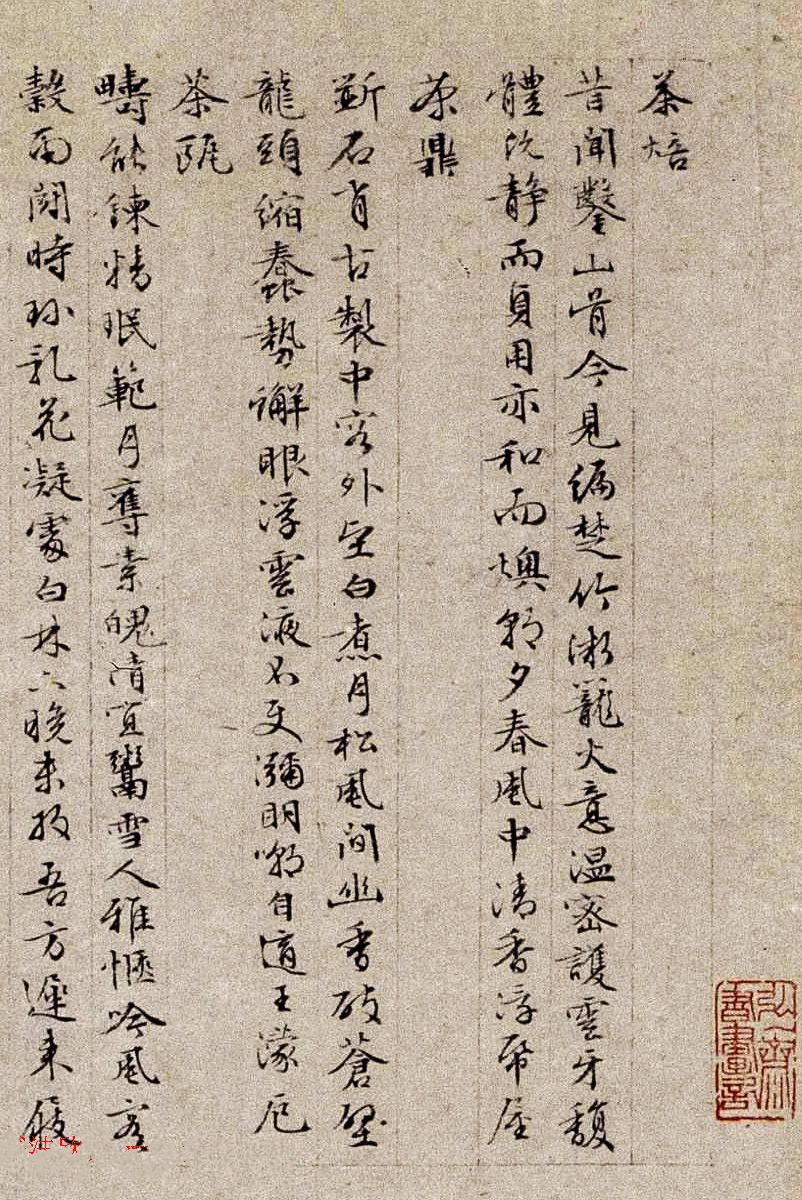 茶焙
昔聞鑿山骨今見編楚竹微籠火意温密護雲牙馥
體既静而貞用亦和而燠朝夕春風中清香浮帋屋
茶鼎
斲石肖古製中容外堅白煮月松風間幽香破蒼壁
龍頭縮蠢勢蠏眼浮雲液不使瀰明嘲自適王濛厄
茶甌
疇能鍊精珉範月奪素魄清宜鬻雪人雅愜吟風客
穀雨鬭時珍乳花凝處白林下晚未收吾方遲來屐